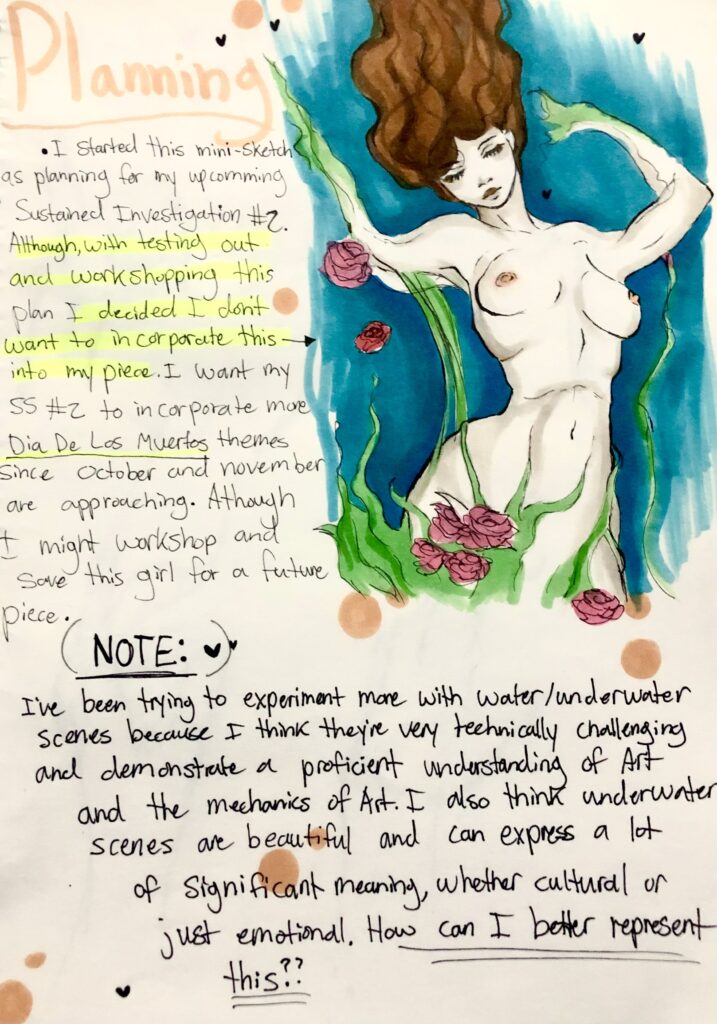 Planning
• I started this mini-sketch
as planning for my upcomming
Sustained Investigation #2.
Although, with testing out
and workshopping this
plan I decided I don't
want to incorporate this →
into my piece. I want my
SS #2 to incorporate more
Dia De Los Muertos themes
since October and november
are approaching. Athough
I might workshop and
save this girl for a future
piece.
(NOTE: ♥)♥
I've been trying to experiment more with water/underwater
scenes because I think they're very technically challenging
and demonstrate a proficient understanding of Art
and the mechanics of Art. I also think underwater
scenes are beautiful and can express a lot
of significant meaning, whether cultural or
just emotional. How can I better represent
this??